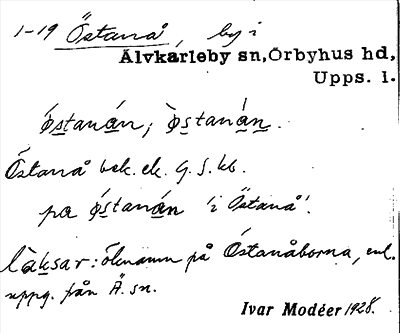 1-19 Östanå, by i
Älvkarleby sn, Örbyhus hd,
Upps. l.
ǿstanán; ò̀stanán.
Östanå bek. ek. G. S. kb.
pa ǿstanán 'i Östanå'.
làksar: öknamn på Östanåborna, enl.
uppg. från Ä. sn.
Ivar Modéer 1928.